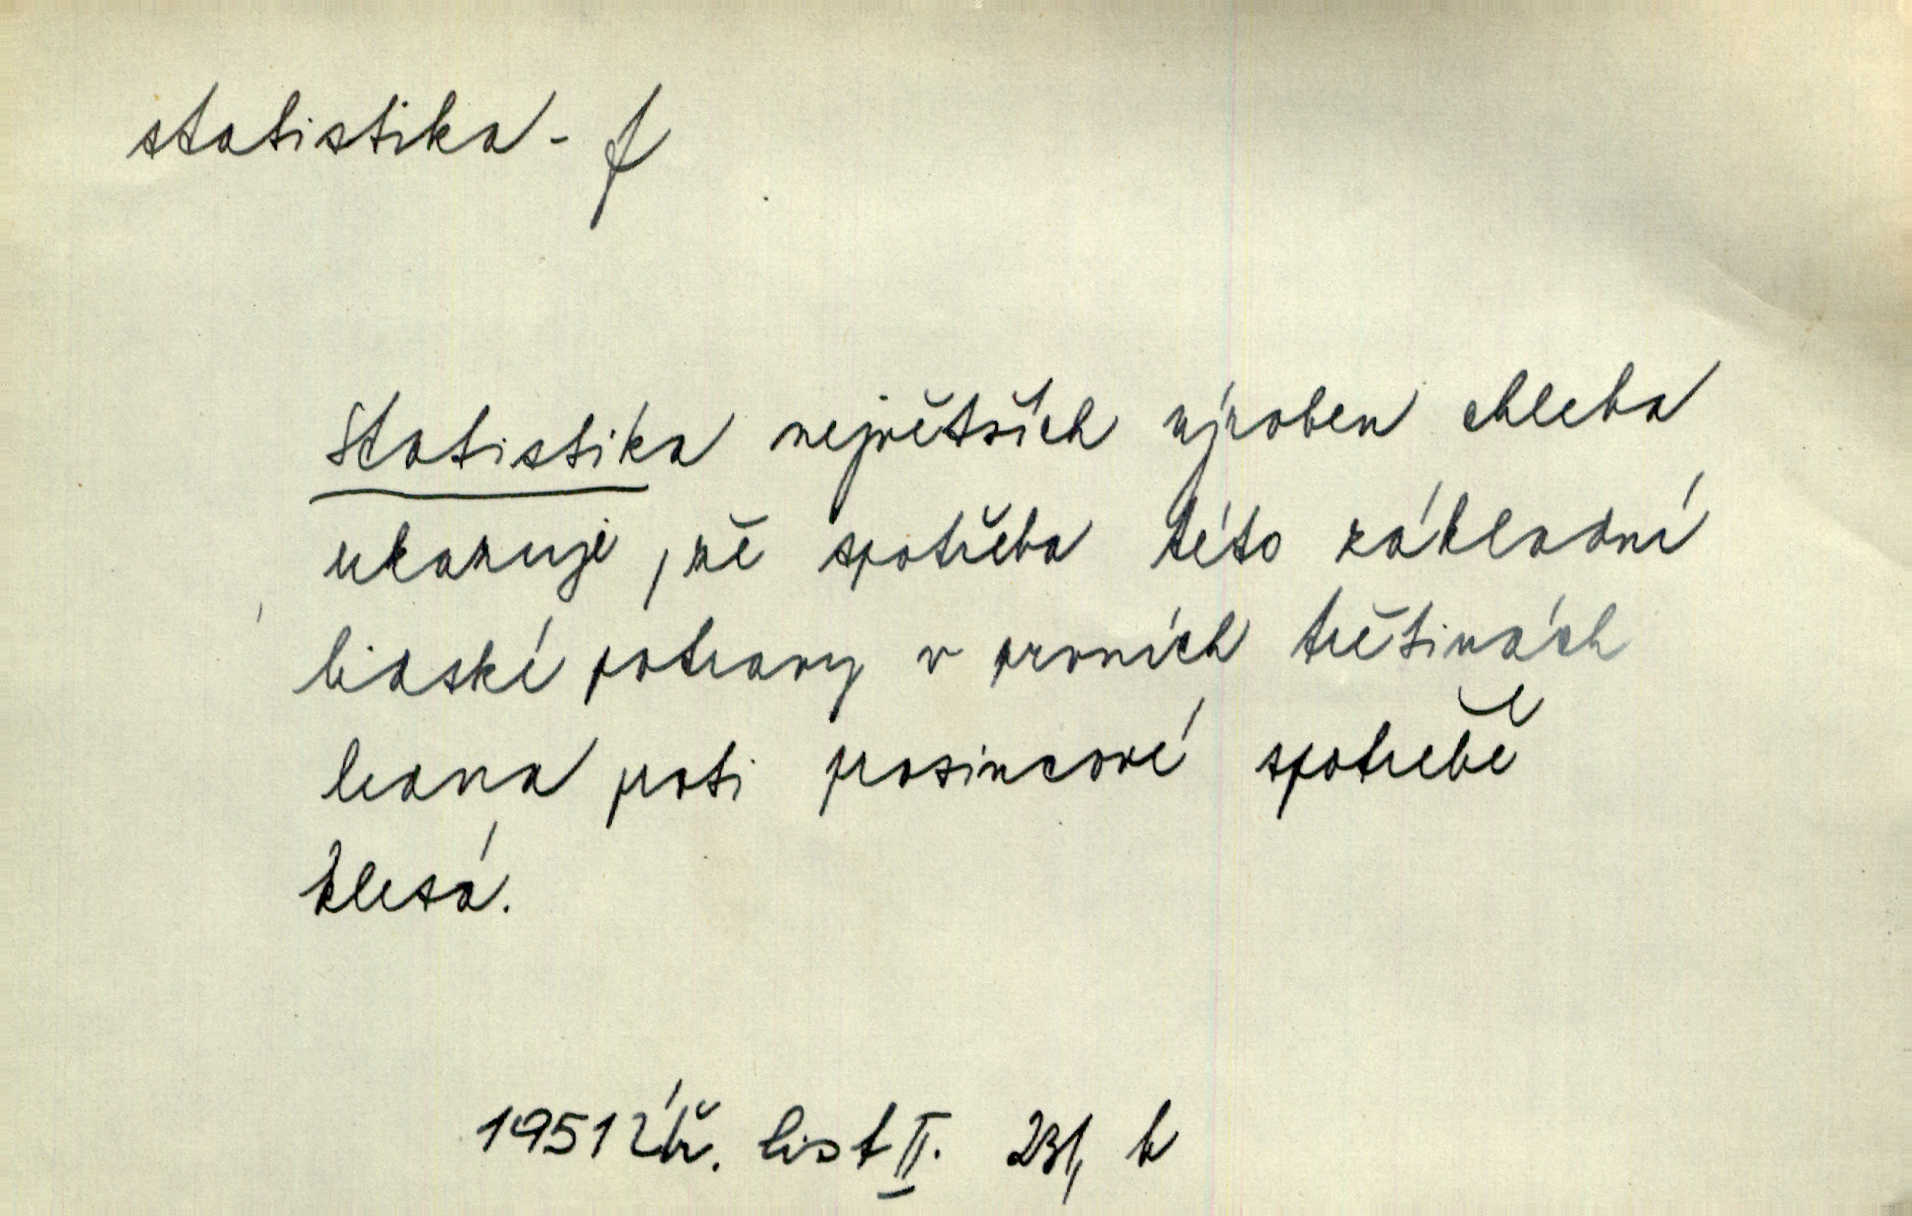 statistika - f
Statistika největších výroben chleba
ukazuje, že spotřeba této základní
lidské potravy v prvních třetinách
ledna proti prosincové spotřebě
klesá.
1951 Úř. list II. 231, b